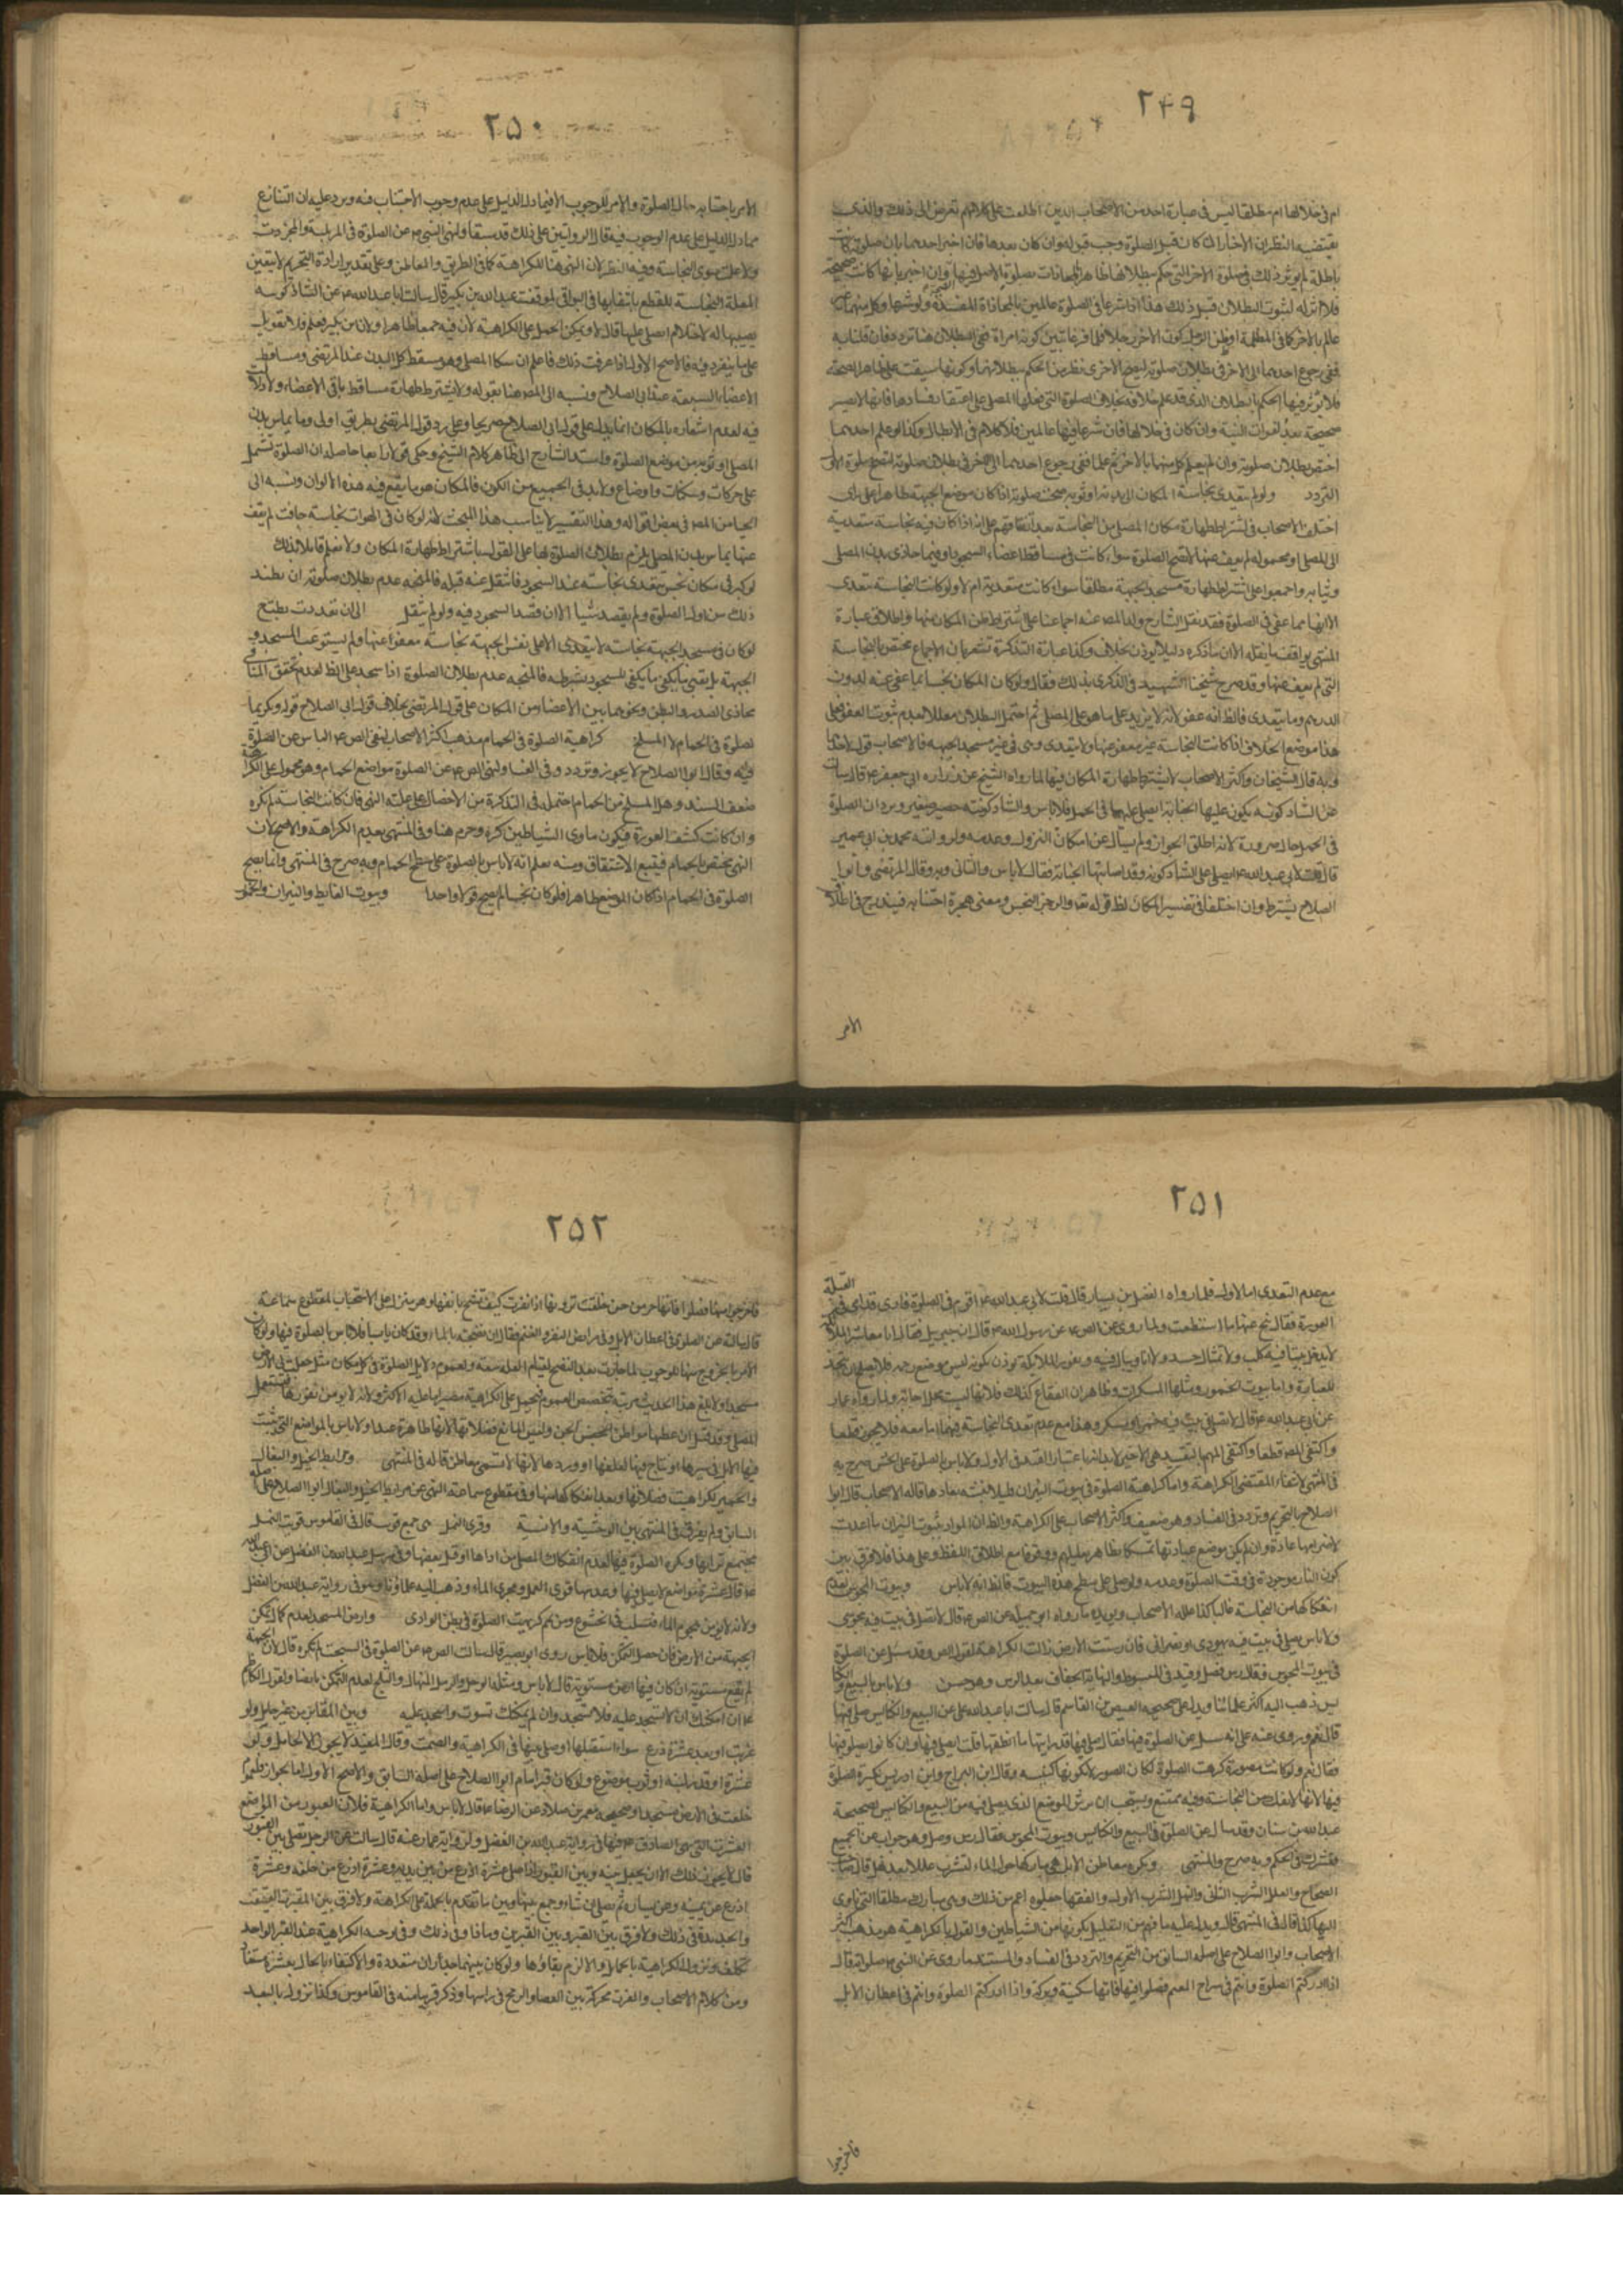 ٢٤٩
ام فی خلالها ام مطلقا لیس فی عبارة احد من الاصحاب الذین اطلعت علی کلامهم تعرض الی ذلك والذی
یقتضیه النظر ان الأخبار اذا کان قبل الصلوة وجب قبوله وان کان بعدها فان اخبر احدهما بان صلوته کانت
باطلة لم یوثر ذلك فی صلوة الآخر التی حکم ببطلانها ظاهرا
فلا اثر له لثبوت البطلان قبل ذلك هذا اذا شرعا فی الصلوة عالمین بالمحاذاة المفسدة ولو شرعا وکل منهما غیر
عالم بالآخر کما فی المظلمة او ظن الرجل کون الآخر رجلا فلما فرغا تبین کونه امراة ففی البطلان هنا تردد فان قلنا به
ففی رجوع احدهما الی الآخر فی بطلان صلوته لتصح الأخری نظر من الحکم ببطلانهما وکونها سیقت علی ظاهر الصحة
فلا یوثر فیها الحکم بالبطلان الذی قد علم خلافه بخلاف الصلوة التی فعلها المصلی علی اعتقاد فسادها فانها لا تصیر
صحیحة بعد لفوات النیة وان کان فی خلالها فان شرعا فیها عالمین فلا کلام فی الابطال وکذا لو علم احدهما
اختص بطلان صلوته وان لم یعلم کل منهما بالآخر ثم علما ففی رجوع احدهما الی الآخر فی بطلان صلوته لتصح صلوة الآخر
التردد ولو لم یتعدی نجاسة المکان الی بدنه او ثوبه صحت صلوته اذا کان موضع الجبهة طاهرا علی رای
اختلف الاصحاب فی اشتراط طهارة مکان المصلی من النجاسة بعد اتفاقهم علی انه اذا کان فیه نجاسة متعدیة
الی المصلی او محموله لم یعف عنها لا تصح الصلوة سواء کانت فی مساقط اعضاء السجود او فیما حاذی بدن المصلی
وثیابه واجمعوا علی اشتراط طهارة مسجد الجبهة مطلقا سواء کانت متعدیة ام لا ولو کانت النجاسة تتعدی
الا انها مما عفی فی الصلوة فقد نقل الشارح ولد المص عنه اجماعنا علی اشتراط خلو المکان منها واطلاق عبارة
المنتهی یوافق ما نقله الا ان ما ذکره دلیلا یوذن بخلافه وکذا عبارة التذکرة تشعر بان الاجماع مختص بالنجاسة
التی لم یعف عنها وقد صرح شیخنا الشهید فی الذکری بذلك فقال ولو کان المکان نجسا بما عفی عنه لدون
الدرهم وما یتعدی فالظ انه عفو لانه لا یزید علی ما هو علی المصلی ثم احتمل البطلان معللا بعدم ثبوت العفو
هذا موضع الخلاف اذا کانت النجاسة غیر معفو عنها ولا یتعدی وهی فی غیر مسجد الجبهة فالاصحاب قولان
وبه قال الشیخان واکثر الاصحاب لا یشترط طهارة المکان فیها لما رواه الشیخ عن زراره ابی جعفر ع قال سالته
عن الشاذکونه یکون علیها الجنابة ایصلی علیها فی المحمل فلا باس والشاذکونه حصیر صغیر ویرد ان الصلوة
فی المحمل حال ضرورة لانه اطلق الجواز ولم یسأل عن امکان النزول وعدمه ولروایة محمد بن ابی عمیر
قال قلت لابی عبد الله ع اصلی علی الشاذکونه وقد اصابتها الجنابة فقال لا باس والثانی وبه وقال المرتضی وابوا
الصلاح یشترط وان اختلفا فی تفسیر المکان لظ قوله تعه والرجز النجس ومعنی هجره اجتنابه فیندرج فی اطلاق
الامر
٢٥٠
الأمر باجتنابه حال الصلوة والامر للوجوب الا فیما دل الدلیل علی عدم وجوب الأجتناب فیه ویرد علیه ان التنازع
مما دل الدلیل علی عدم الوجوب فیه فان الروایتین علی ذلك قد سبقتا ولنهی النبی ص عن الصلوة فی المزبلة والمجزرة
ولا علة سوی النجاسة وفیه النظر لان النهی هنا للکراهة کما فی الطریق والمعاطن وعلی تقدیر ارادة التحریم لا یتعین
العلة النجاسة للقطع بانتفایها فی البواقی لموثقة عبد الله بن بکیر قال سالت ابا عبد الله ع عن الشاذکونه
یصیبها الاحتلام ایصلی علیها قال لا ویمکن الحمل علی الکراهة لان فیه جمعا ظاهرا ولان ابن بکیر فطحی فلا تعویل
علی ما ینفرد به فالاصح الاول اذا عرفت ذلك فاعلم ان مکان المصلی وهو مسقط کل البدن عند المرتضی ومساقط
الاعضاء السبعة عند ابی الصلاح ونسبه الی المص هنا بقوله ولا یشترط طهارة مساقط باقی الاعضاء
فیه لعدم اشعاره بالمکان انما یدل علی قول ابی الصلاح صریحا وعلی رد قول المرتضی بطریق اولی وما یماس بدن
المصلی او ثوبه من موضع الصلوة واسنده الشارح الی ظاهر کلام الشیخ وحکی قولا رابعا حاصله ان الصلوة تشتمل
علی حرکات وسکنات واوضاع ولا بد فی الجمیع من الکون فالمکان هو ما یقع فیه هذه الالوان ونسبه الی
الجبائی من المص فی بعض اقواله وهذا التفسیر لا یناسب هذا المبحث لانه لو کان فی الهواء نجاسة جافة لم یعف
عنها یماس بدن المصلی یلزم بطلان الصلوة بها علی القول باشتراط طهارة المکان ولا نعلم قائلا بذلك
لو کبر فی مکان نجس یتعدی نجاسته عند السجود فانتقل عنه قبله فالمتجه عدم بطلان صلوته ان لم یقصد
ذلك من اول الصلوة ولم یقصد شیئا الا ان قصد السجود فیه ولو لم ینتقل الی ان تعددت بطلت
لو کان فی مسجد الجبهة نجاسة لا یتعدی الا علی نفس الجبهة نجاسة معفوا عنها ولم یستوعب المسجد و
الجبهة بل یبقی ما یکفی للسجود بشرطه فالمتجه عدم بطلان الصلوة اذا سجد علی الظ لعدم تحقق المنافی
محاذی الصدر والبطن ونحوهما بین الاعضاء من المکان علی قول المرتضی بخلاف قول ابی الصلاح قوله ویکره
لصلوة فی الحمام لا المسلخ کراهیة الصلوة فی الحمام مذهب اکثر الاصحاب لنفی الص ع الباس عن الصلوة
فیه وقال ابوا الصلاح لا یجوز وتردد فی الفساد ولنهی الص ع عن الصلوة مواضع الحمام وهو محمول علی الکراهة
ضعف السند وهل المسلخ من الحمام احتمله فی التذکرة من الاحتمال علی علة النهی فان کانت النجاسة لم یکره
وان کانت کشف العورة فیکون ماوی الشیاطین کره وجزم هنا وفی المنتهی بعدم الکراهة والاصح لان
النهی مختص بالحمام فیتبع الاشتقاق ومنه یعلم انه لا باس بالصلوة علی سطح الحمام وبه صرح فی المنتهی وانما یصح
الصلوة فی الحمام اذا کان الموضع طاهرا فلو کان نجسا لم یصح قولا واحدا وبیوت الغایط والنیران والخمور
٢٥١
مع عدم التعدی اما الاول فلما رواه الفضیل بن یسار قال قلت لابی عبد الله ع اقوم فی الصلوة فاری قدامی فی القبلة
العورة فقال تنح عنها ما استطعت ولما روی عن الص ع عن رسول الله ص قال ان جبریل فقال انا معاشر الملائکة
لا ندخل بیتا فیه کلب ولا تمثال جسد ولا اناء یبال فیه ونفور الملائکة یوذن بکونه لیس موضع رحمة فلا یصلح ان یتخذ
للعبادة واما بیوت الخمور ومثلها المسکرات وظاهر ان الفقاع کذلك فلانها لیست محل اجابة ولما رواه عمار
عن ابی عبد الله ع قال لا تصل فی بیت فیه خمر او مسکر وهذا مع عدم تعدی النجاسة فیهما اما معه فلا یجوز قطعا
واکتفی المص
فی المنتهی لانتفاء المقتضی للکراهة واما کراهیة الصلوة فی بیوت النیران فلئلا یتشبه بعبادها قاله الاصحاب قال ابوا
الصلاح بالتحریم وتردد فی الفساد وهو ضعیف واکثر الاصحاب علی الکراهة والظ ان المراد ببیوت النیران ما اعدت
لاضرامها عادة وان لم یکن موضع عبادتها تمسکا بظاهر تعلیلهم ووقوفا مع اطلاق اللفظ وعلی هذا فلا فرق بین
کون النار موجودة فی وقت الصلوة وعدمه ولو صلی علی سطح هذه البیوت فالظ انه لا باس وبیوت المجوس لعدم
انفکاکها من النجاسة غالبا کذا علله الاصحاب ویویده ما رواه ابی جمیلة عن الص ع قال لا تصل فی بیت فیه مجوسی
ولا باس یصلی فی بیت فیه یهودی او نصرانی فان رشت الارض زالت الکراهة لقول الص وقد سئل عن الصلوة
فی بیوت المجوس فقال رش وصل وقید فی المبسوط والنهایة الجفاف بعد الرش وهو حسن ولا باس بالبیع والکنائس
ذهب الیه اکثر علمائنا ویدل علی صحیحه العیص بن القاسم قال سالت ابا عبد الله علی عن البیع والکنایس یصلی فیها
قال نعم وروی عنه علی انه سئل عن الصلوة فیها فقال صل فیها قد رایتها ما انظفها قلت ایصلی فیها وان کانوا یصلون فیها
فقال نعم ولو کانت مصورة کرهت الصلوة لکان الصور لا لکونها کنیسه وقال ابن البراج وابن ادریس بکره الصلوة
فیها لانها لا تنفك من النجاسة وفیه ممتنع ویستحب ان یرش الموضع الذی یصلی فیه من البیع والکنایس لصحیحة
عبد الله بن سنان وقد سال عن الصلوة فی البیع والکنایس وبیوت المجوس فقال رش وصل وهو جواب عن الجمیع
فتشترك فی الحکم وبه صرح والمنتهی ویکره معاطن الابل هی مبارکها حول الماء لتشرب عللا بعد نهل قال صاحب
الصحاح والعلل الشرب الثانی والنهل الشرب الاول والفقها جعلوه اعم من ذلك وهی مبارك مطلقا التی تاوی
الیها کذا قال فی المنتهی قال ویدل علیه ما فهم من التعلیل بکونها من الشیاطین والقول بالکراهیة هو مذهب اکثر
الاصحاب وابوا الصلاح علی اصله السابق من التحریم والتردد فی الفساد والمستند ما روی عن النبی ص انه قال
اذا ادرکتم الصلوة وانتم فی مراح الغنم فصلوا فیها فانها سکینة وبرکة واذا ادرکتم الصلوة وانتم فی اعطان الابل
فاخرجوا
٢٥٢
فاخرجوا منها فصلوا فانها جن من جن خلقت ترونها اذا نفرت کیف تشمخ بانفها وهو منزل علی الاستحباب لمقطوع سماعة
قال سالته عن الصلوة فی اعطان الابل وفی مرابض البقر والغنم فقال ان نضحته بالماء وقد کان یابسا فلا باس بالصلوة فیها ولو کان
الامر بالخروج منها للوجوب لما جازت بعد النضح لقیام العلة معه ولعموم دلایل الصلوة فی کل مکان مثل جعلت لی الارض
مسجدا ولا یبلغ هذا الحدیث مرتبة تخصیص العموم فیحمل علی الکراهیة مصیرا ما علیه الاکثر ولانه لا یومن نفورها فتشغل
المصلی وقد قیل ان عطنها مواطن الجن ولیس المانع فضلاتها لانها طاهرة عندنا ولا باس بالمواضع التی تبیت
فیها الابل فی سیرها او تناخ فیها لعلفها او وردها لانها لا تسمی معاطن قاله فی المنتهی ومرابط الخیل والبغال
والحمیر لکراهیة فضلاتها وبعد انفکاکها منها وفی مقطوع سماعة النهی عن مرابط الخیل والبغال ابوا الصلاح علی اصله
السابق ولم یفرق فی المنتهی بین الوحشیة والانسیة وقری النمل هی جمع قریة قال فی القاموس قریة النمل
مجتمع ترابها ویکره الصلوة فیها لعدم انفکاك المصلی من اذاها او قتل بعضها وفی مرسل عبد الله بن الفضل عن ابی عبد الله
ع قال عشرة مواضع لا یصلی فیها وعد منها قری النمل ومجری الماء وذهب الیه علماؤنا وهو فی روایة عبد الله بن الفضل
ولانه لا یومن هجوم الماء فتسلب الخشوع ومن ثم کرهت الصلوة فی بطن الوادی وارض السبخة لعدم کمال تمکن
الجبهة من الارض فان حصل التمکن فلا باس روی ابو بصیر قال سالت الص ع عن الصلوة فی السبخة لم یکره قال لان الجبهة
لم تقع مستویة ان کان فیها ارض مستویة قال لا باس ومثله الوحل والرمل المنهال والثلج لعدم التمکن ایضا ولقول الکاظم
ع ان امکنك ان لا تسجد علیه فلا تسجد وان لم یمکنك فسوه واسجد علیه وبین المقابر من غیر حایل ولو
عنزة او بعد عشرة اذرع سواء استقبلها او صلی بینها فی الکراهیة والصمت وقال المفید لا یجوز الا بحایل ولو
عنزة او قدر لبنة او ثوب موضوع ولو کان قبر امام ابوا الصلاح علی اصله السابق والاصح الاول اما الجواز فلعموم
جعلت لی الارض مسجدا وصحیحة معمر بن خلاد عن الرضا ع قال لا باس واما الکراهیة فلان القبور من المواضع
العشرة التی نهی الصادق ع فیها فی روایة عبد الله بن الفضل ولروایة عمار عنه قال سالت عن الرجل یصلی بین القبور
قال لا یجوز ذلك الا ان یجعل بینه وبین القبور اذا صلی عشرة اذرع من بین یدیه وعشرة اذرع من خلفه وعشرة
اذرع عن یمینه وعن یساره ثم یصلی ان شاء وجمع بینها وبین ما تقدم بالحمل علی الکراهة ولا فرق بین المقبرة العتیقة
والجدیدة فی ذلك ولا فرق بین القبر وبین القبرین وما زاد فی ذلك وفی وجه الکراهیة عند القبر الواحد
تکلف وتزول الکراهیة بالحایل والا لزم بقاؤها ولو کان بینهما جداران متعددة والاکتفاء بالحایل بعشرة مستفاد
ومن کلام الاصحاب والعنزة محرکة بین العصا والرمح فی راسها وذکر قریبا منه فی القاموس وکذا تزول بالبعد